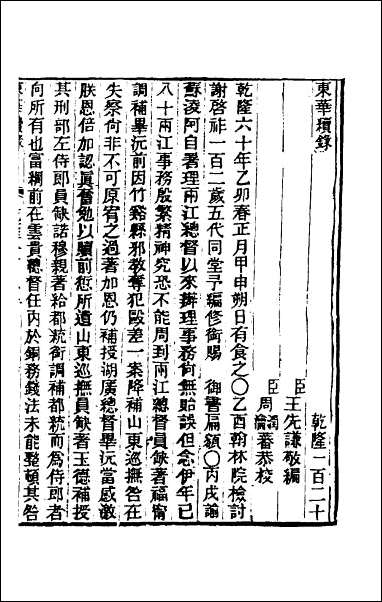 東華續錄
乾隆一百二十
臣王先謙敬編
臣周潤蕃瀹蕃恭校
乾隆六十年乙卯春正月甲申朔日有食之〇乙酉翰林院檢討
謝啓祚一百二歲五代同堂予編修銜賜 御書扁額〇丙戌諭
蘇淩阿自署理兩江總督以來辦理事務尙無貽誤但念伊年已
八十兩江事務殷繁精神究恐不能周到兩江總督員缺著福寧
調補畢沅前因竹谿縣邪教奪犯毆差一案降補山東巡撫咎在
失察尙非不可原宥之過著加恩仍補授湖廣總督畢沅當感激
朕恩倍加認眞奮勉以贖前愆所遺山東巡撫員缺著玉德補授
其刑部左侍郎員缺諾穆親著給都統銜調補都統而爲侍郎者
向所有也富綱前在雲貴總督任內於銅務錢法未能整頓其咎